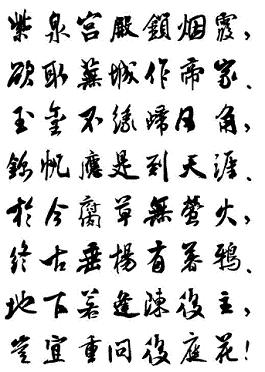 紫泉宫殿鎖烟霞，
欲取蕪城作帝家。
玉璽不緣歸日角，
錦帆應是到天涯。
於今腐草無螢火，
終古垂楊有暮鴉。
地下若逢陳後主，
豈宜重問後庭花！